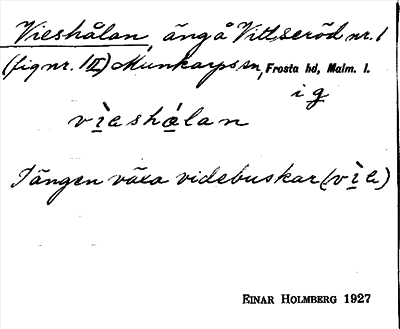 Vieshålan, äng å Vittseröd nr. 1
(fig nr. 1 II) Munkarps sn, Frosta hd, Malm. l.
i g
vìeshålan
I ängen växa videbuskar (vìe)
EINAR HOLMBERG 1927